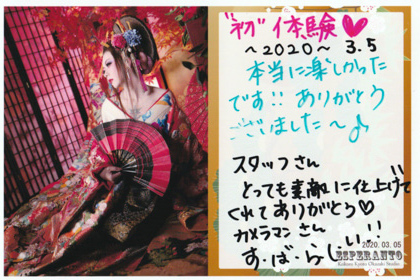 "初"体験♡
～2020～ 3.5
本当に楽しかった
です!! ありがとう
ございました～♪
スタッフさん
とっても素敵に仕上げて
くれてありがとう♡
カメラマンさん
す・ば・らしい!!
2020.03.05
ESPERANTO